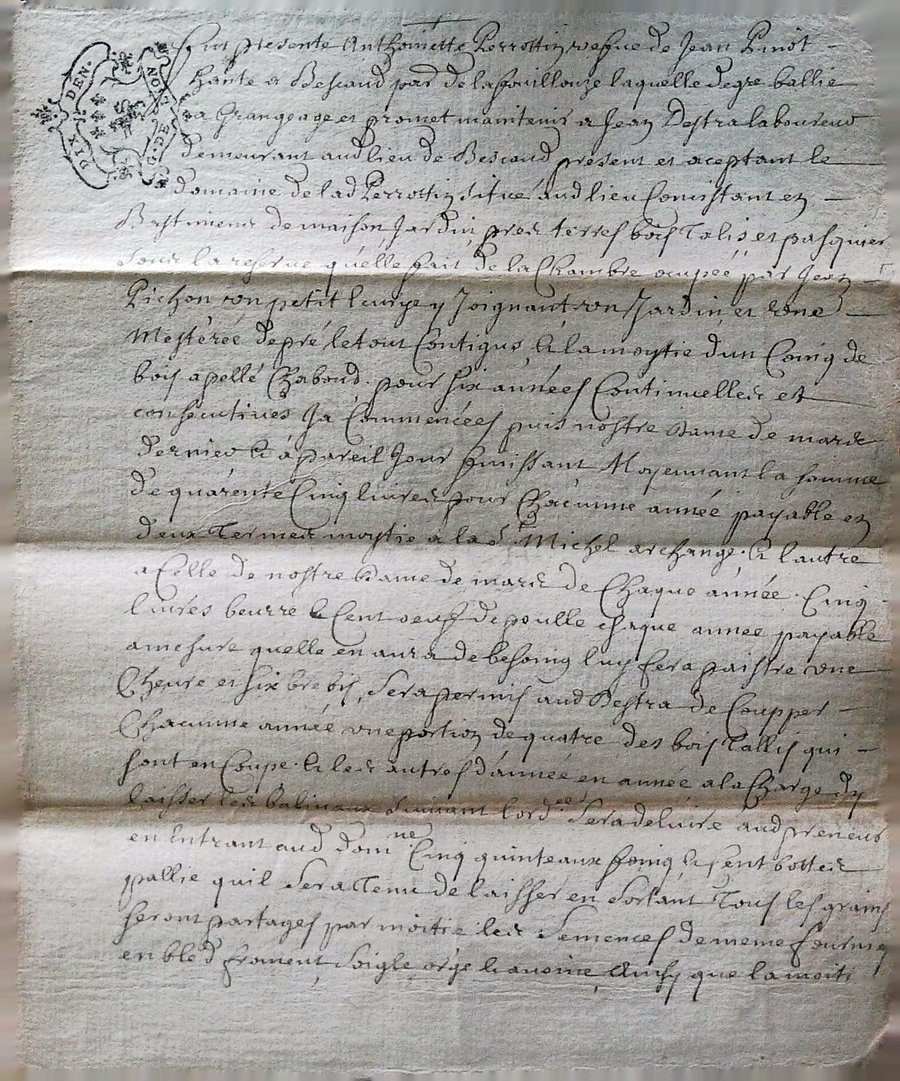 DIX DEN. NON. G. DE
Fut presente Anthoinette Perrottin vefve de Jean Pinot
hante a Bescaud par de lafouillouze laquelle degre baillie
a Grangeage et promet maintenir a Jean Destra laboureur
demeurant aud lieu de Bescaud present et aceptant le
domaine de lad Perrottin situé aud lieu Consistant en
Bastiment de maison Jardin prez terres bois Talis et pasquier
sous la reserve quelle fait de la Chambre ocupée par Jean
Pichon un petit Joignant un Jardin et une
Mestérée de pré le tout Contigus, & la moytie dun Coing de
bois apellé Chaboud. pour six années Continuelles et
consécutives Ja Commencées puis nostre dame de mars
dernier & a pareil Jour finissant Moyennant la somme
de quarente Cinq livres pour Chacunne année payable en
deux Termes moytie a la St Michel archange & lautre
a Celle de nostre dame de mars de Chaque année. Cinq
livres beurre & Cent oeuf de poulle chaque année payable
amesure quelle en aura de besoing luy fera paistre une
Cheure et six brebis, Sera permis aud Destra de Coupper
Chacunne année une portion de quatre des bois Tallis qui
sont en Coupe & les autres d'année en année a la Charge dy
laisser les balivaux suivant lordee Sera deluire aud preneur
en Entrant aud domne Cinq quinteaux foing & sent bottes
pallie quil Sera Tenu de laisser en Sortant Tous les grains
seront partages par moitie les Semences de meme fournies
en bled froment Soigle orge & avoine Ainsy que la moiti